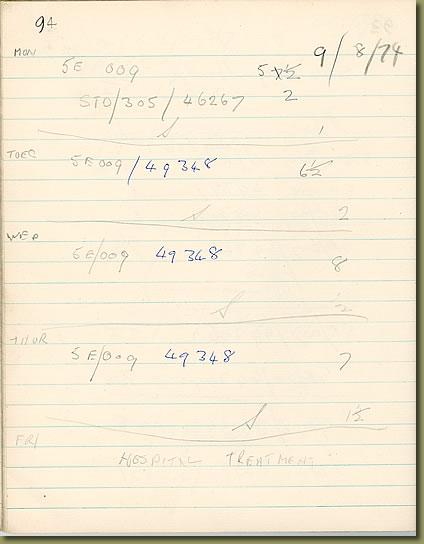 94
9/8/74
MON
5E 009 5½
STO/305/46267 2
S 1
TUES
5E009/49348 6½
S 2
WED
5E/009 49348 8
S ½
THUR
5E/009 49348 7
S 1½
FRI
HOSPITAL TREATMENT